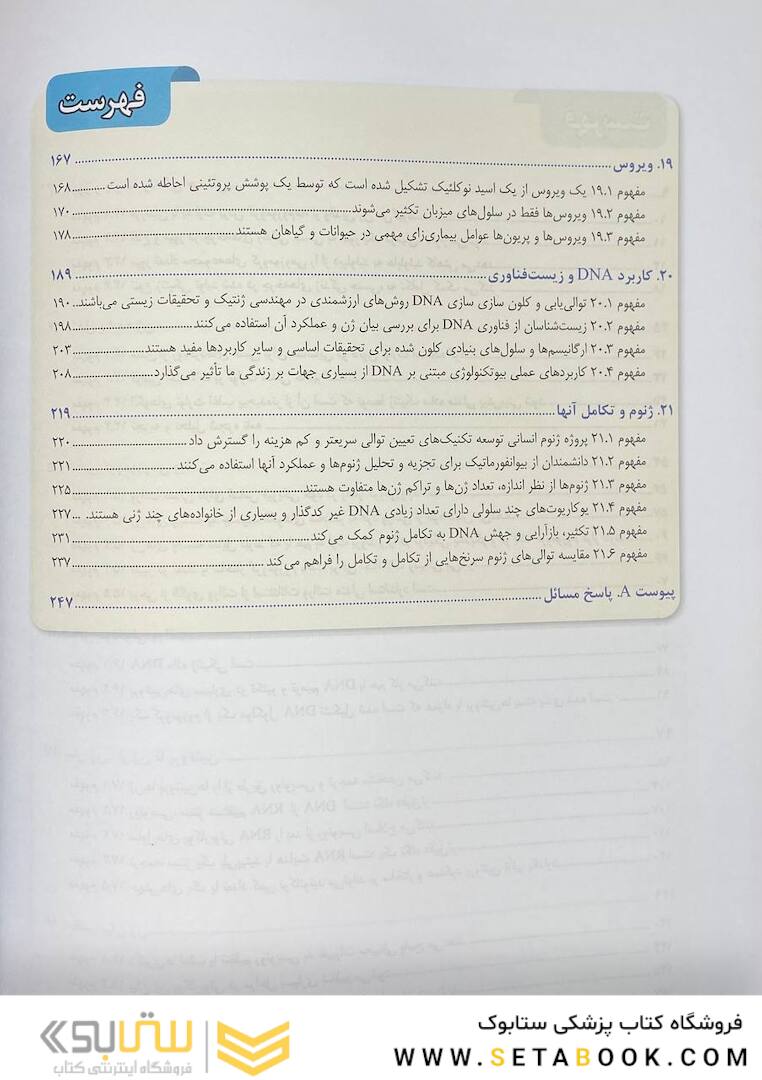 فهرست
۱۹. ویروس ۱۶۷
مفهوم ۱۹.۱ یک ویروس از یک اسید نوکلئیک تشکیل شده است که توسط یک پوشش پروتئینی احاطه شده است ۱۶۸
مفهوم ۱۹.۲ ویروس‌ها فقط در سلول‌های میزبان تکثیر می‌شوند ۱۷۰
مفهوم ۱۹.۳ ویروس‌ها و پریون‌ها عوامل بیماری‌زای مهمی در حیوانات و گیاهان هستند ۱۷۸
۲۰. کاربرد DNA و زیست‌فناوری ۱۸۹
مفهوم ۲۰.۱ توالی‌یابی و کلون سازی سازی DNA روش‌های ارزشمندی در مهندسی ژنتیک و تحقیقات زیستی می‌باشند ۱۹۰
مفهوم ۲۰.۲ زیست‌شناسان از فناوری DNA برای بررسی بیان ژن و عملکرد آن استفاده می‌کنند ۱۹۸
مفهوم ۲۰.۳ ارگانیسم‌ها و سلول‌های بنیادی کلون شده برای تحقیقات اساسی و سایر کاربردها مفید هستند ۲۰۳
مفهوم ۲۰.۴ کاربردهای عملی بیوتکنولوژی مبتنی بر DNA از بسیاری جهات بر زندگی ما تأثیر می‌گذارد ۲۰۸
۲۱. ژنوم و تکامل آنها ۲۱۹
مفهوم ۲۱.۱ پروژه ژنوم انسانی توسعه تکنیک‌های تعیین توالی سریعتر و کم هزینه را گسترش داد ۲۲۰
مفهوم ۲۱.۲ دانشمندان از بیوانفورماتیک برای تجزیه و تحلیل ژنوم‌ها و عملکرد آنها استفاده می‌کنند ۲۲۱
مفهوم ۲۱.۳ ژنوم‌ها از نظر اندازه، تعداد ژن‌ها و تراکم ژن‌ها متفاوت هستند ۲۲۵
مفهوم ۲۱.۴ یوکاریوت‌های چند سلولی دارای تعداد زیادی DNA غیر کدگذار و بسیاری از خانواده‌های چند ژنی هستند. ۲۲۷
مفهوم ۲۱.۵ تکثیر، بازآرایی و جهش DNA به تکامل ژنوم کمک می‌کند ۲۳۱
مفهوم ۲۱.۶ مقایسه توالی‌های ژنوم سرنخ‌هایی از تکامل و تکامل را فراهم می‌کند ۲۳۷
پیوست A. پاسخ مسائل ۲۴۷
فروشگاه کتاب پزشکی ستابوک
WWW.SETABOOK.COM
ستابوک
فروشگاه اینترنتی کتاب